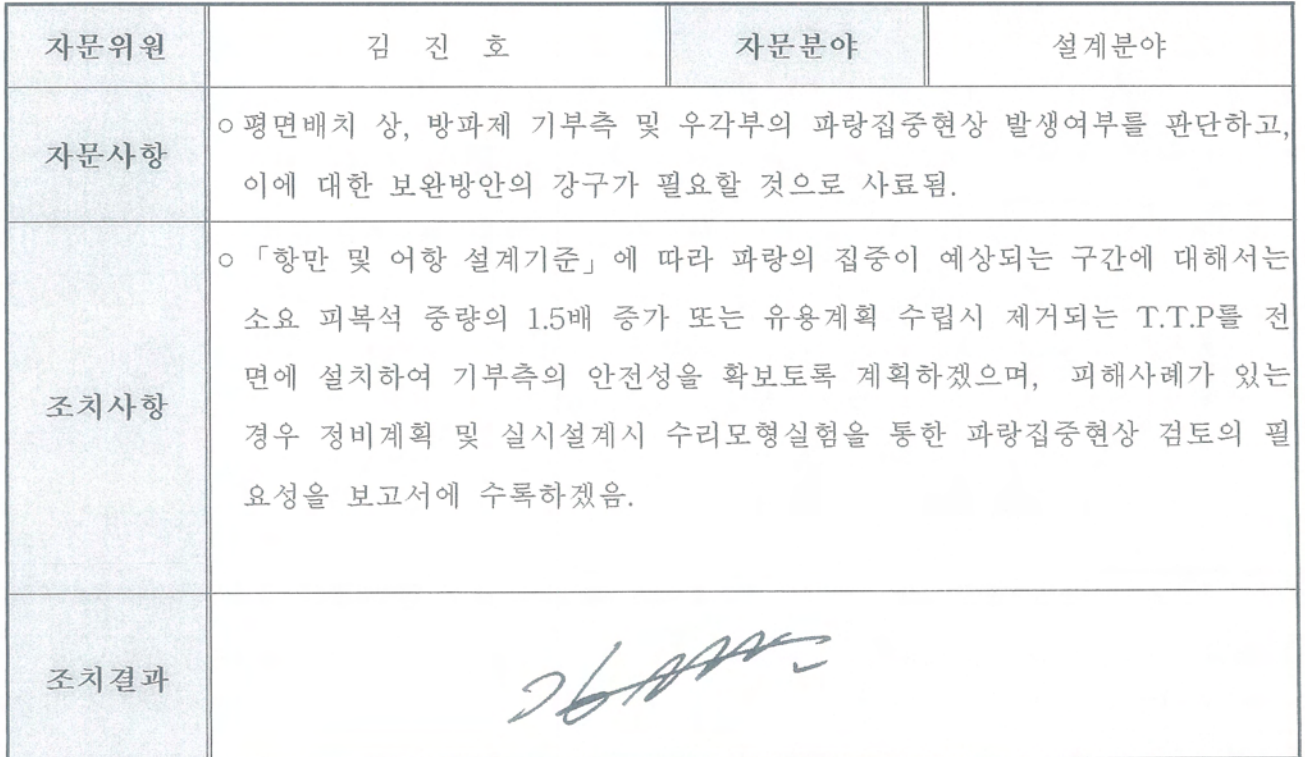 자문위원 김 진 호 자문분야 설계분야
자문사항
○ 평면배치 상, 방파제 기부측 및 우각부의 파랑집중현상 발생여부를 판단하고,
이에 대한 보완방안의 강구가 필요할 것으로 사료됨.
조치사항
○ 「항만 및 어항 설계기준」에 따라 파랑의 집중이 예상되는 구간에 대해서는
소요 피복석 중량의 1.5배 증가 또는 유용계획 수립시 제거되는 T.T.P를 전
면에 설치하여 기부측의 안전성을 확보토록 계획하겠으며, 피해사례가 있는
경우 정비계획 및 실시설계시 수리모형실험을 통한 파랑집중현상 검토의 필
요성을 보고서에 수록하겠음.
조치결과